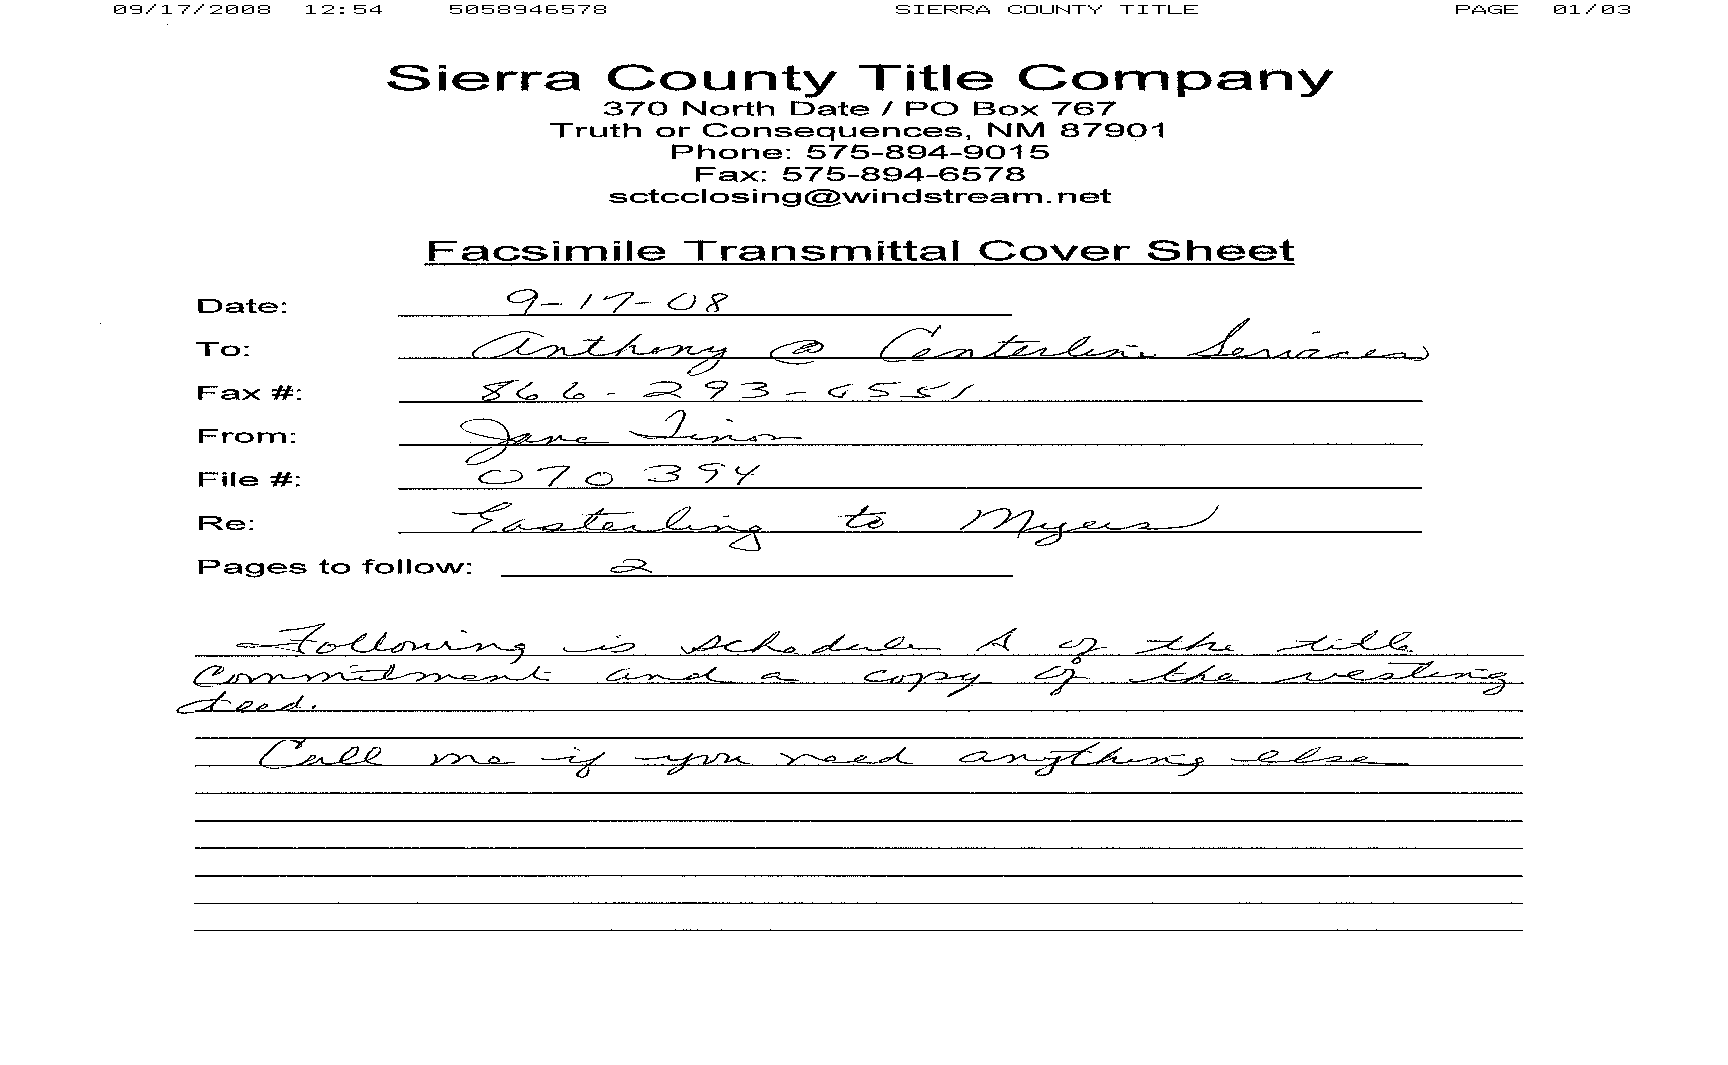 09/17/2008 12:54 5058946578 SIERRA COUNTY TITLE PAGE 01/03
Sierra County Title Company
370 North Date / PO Box 767
Truth or Consequences, NM 87901
Phone: 575-894-9015
Fax: 575-894-6578
sctcclosing@windstream.net
Facsimile Transmittal Cover Sheet
Date: 9-17-08
To: Anthony @ Centerline Services
Fax #: 866-293-
From: Jane
File #: 070394
Re: Easterling to Myers
Pages to follow: 2
Following is schedule A of the title
commitment and a copy of the vesting
deed.
Call me if you need anything else